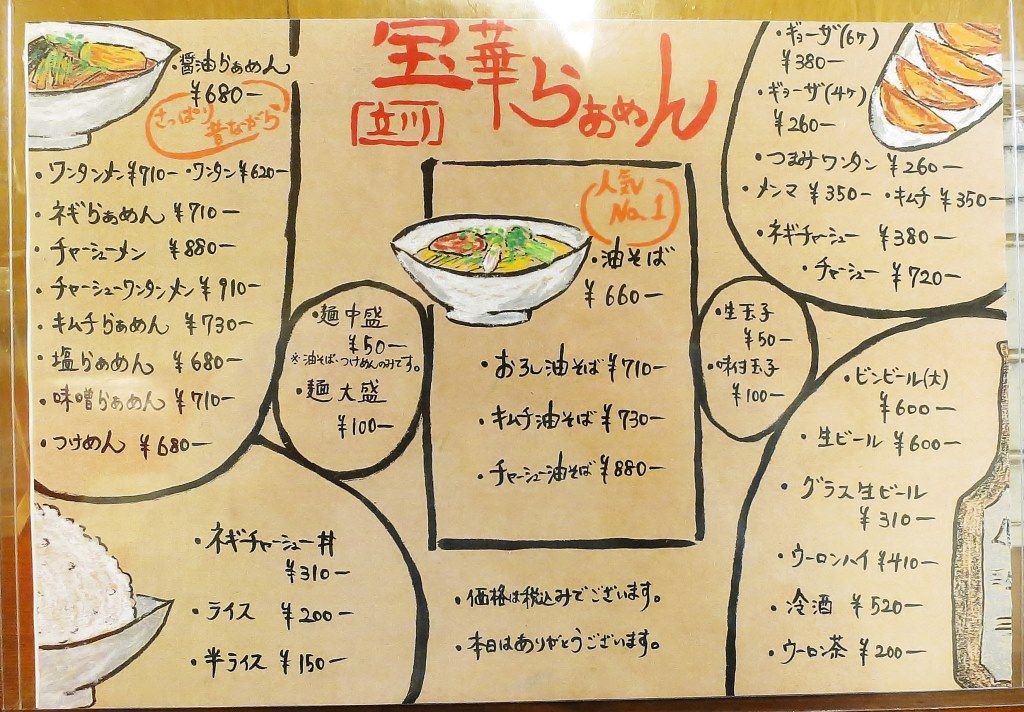 宝華らぁめん
[立川]
・醤油らぁめん
¥680-
さっぱり
昔ながら
・ワンタンメン ¥710- ・ワンタン ¥620-
・ネギらぁめん ¥710-
・チャーシューメン ¥880-
・チャーシューワンタンメン ¥910-
・キムチらぁめん ¥730-
・塩らぁめん ¥680-
・味噌らぁめん ¥710-
・つけめん ¥680-
・麺中盛
¥50-
※油そば、つけめんのみです。
・麺大盛
¥100-
人気
No.1
・油そば
¥660-
・おろし油そば ¥710-
・キムチ油そば ¥730-
・チャーシュー油そば ¥880-
・生玉子
¥50-
・味付玉子
¥100-
・ギョーザ(6ヶ)
¥380-
・ギョーザ(4ヶ)
¥260-
・つまみワンタン ¥260-
・メンマ ¥350- ・キムチ ¥350-
・ネギチャーシュー ¥380-
・チャーシュー ¥720-
・ビンビール(大)
¥600-
・生ビール ¥600-
・グラス生ビール
¥310-
・ウーロンハイ ¥410-
・冷酒 ¥520-
・ウーロン茶 ¥200-
・ネギチャーシュー丼
¥310-
・ライス ¥200-
・半ライス ¥150-
・価格は税込みでございます。
・本日はありがとうございます。